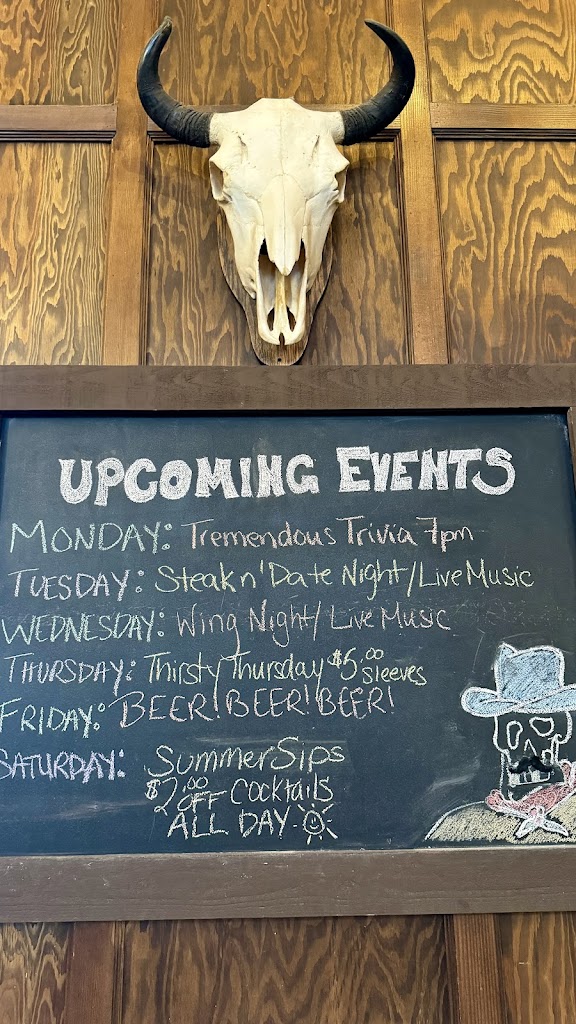 UPCOMING EVENTS
MONDAY: Tremendous Trivia 7pm
TUESDAY: Steak n' Date Night/Live Music
WEDNESDAY: Wing Night/Live Music
THURSDAY: Thirsty Thursday $5.00 Sleeves
FRIDAY: BEER! BEER! BEER!
SATURDAY: Summer Sips
$2.00 OFF Cocktails
ALL DAY